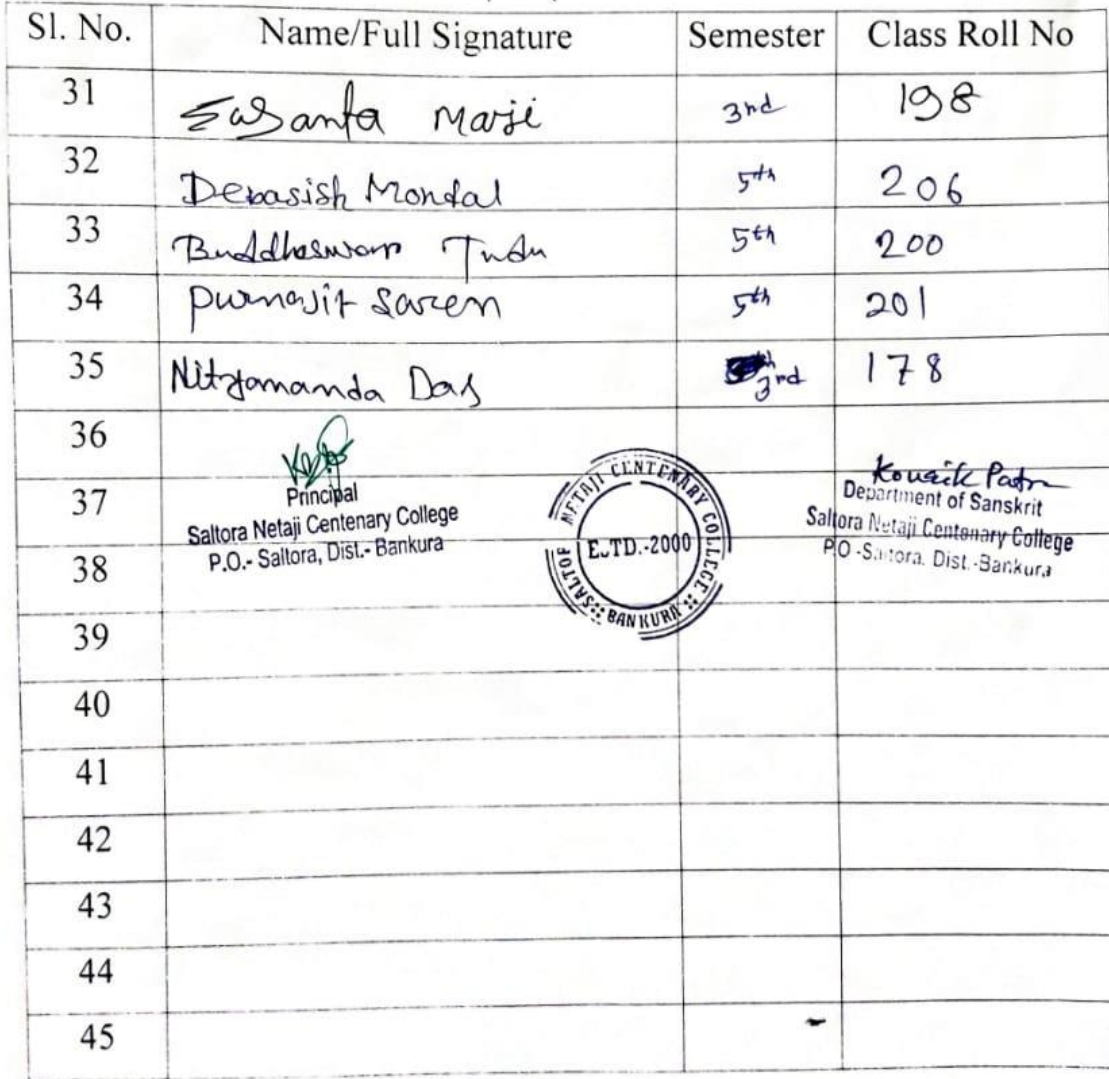 Sl. No. Name/Full Signature Semester Class Roll No
31 Susanta Maji 3rd 198
32 Debasish Mondal 5th 206
33 Buddheswar Tudu 5th 200
34 Purnajit Saren 5th 201
35 Nityananda Das 3rd 178
36
37
38
Principal
Saltora Netaji Centenary College
P.O.- Saltora, Dist.- Bankura
NETAJI CENTENARY COLLEGE
E.TD.-2000
BANKURA
Kousik Patra
Department of Sanskrit
Saltora Netaji Centenary College
P.O -Saltora. Dist.-Bankura
39
40
41
42
43
44
45